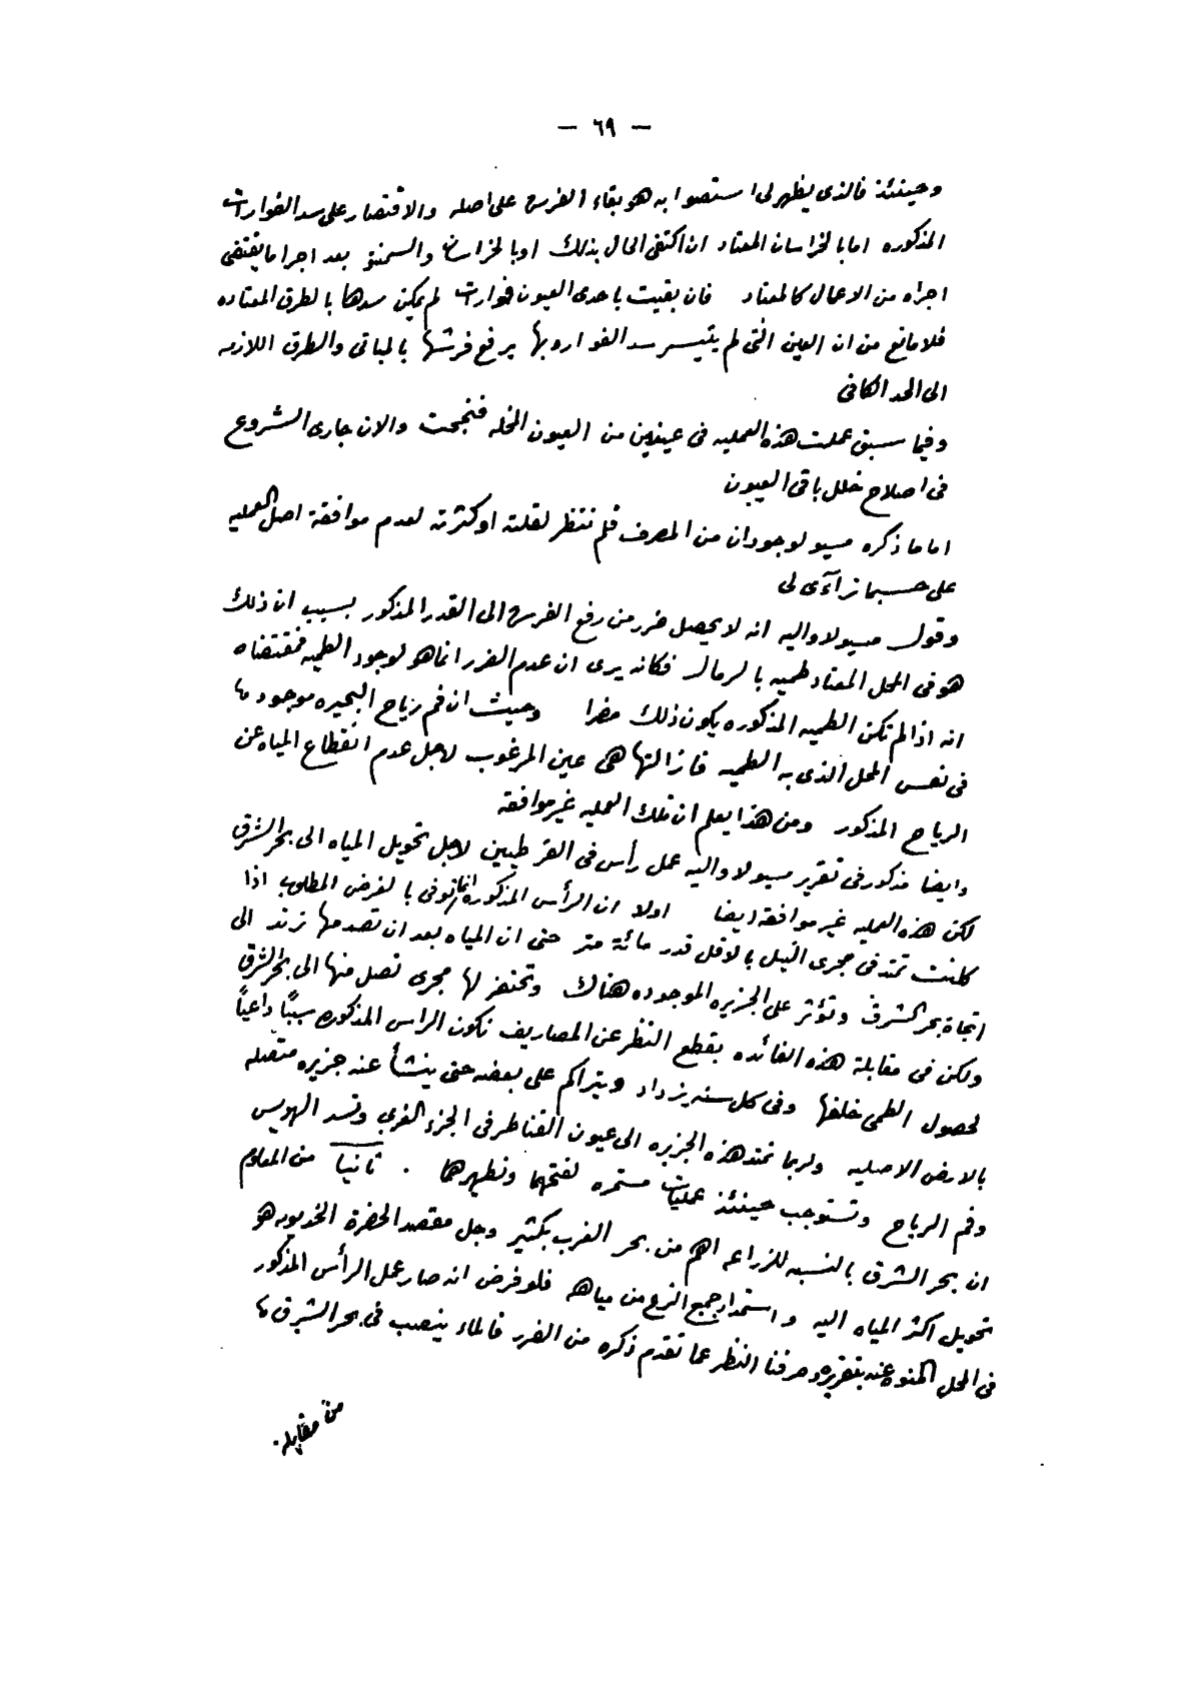 — ٦٩ —
وحينئذ فالذى يظهر لى استصوابه هو بقاء الفرش على اصله والاقتصار على سد الفوارات
المذكوره اما بالخراسان المعتاد ان اكتفى الحال بذلك او بالخراسان والسمنتو بعد اجرا ما يقتضى
اجراه من الاعمال كالمعتاد فان بقيت باحدى العيون فوارات لم يمكن سدها بالطرق المعتاده
فلا مانع من ان العين التى لم يتيسر سد الفواره بها يرفع فرشها بالمبانى والطرق اللازمه
الى الحد الكافى
وفيما سبق عملت هذه العمليه فى عينين من العيون المخله فنجحت والان جارى الشروع
فى اصلاح خلل باقى العيون
اما ما ذكره مسيو لوجودان من المصرف فلم ننتظر لقلته او كثرته لعدم موافقة اصل العمليه
على حسبما ترآءى لى
وقول مسيو لاواليه انه لا يحصل ضرر من رفع الفرش الى القدر المذكور بسبب ان ذلك
هو فى المحل المعتاد طميه بالرمال فكانه يرى ان عدم الضرر انما هو لوجود الطميه فمقتضاه
انه اذا لم تكن الطميه المذكوره يكون ذلك مضرا وحيث ان فم رياح البحيره موجود
فى نفس المحل الذى به الطميه فازالتها هى عين المرغوب لاجل عدم انقطاع المياه عن
الرياح المذكور ومن هذا يعلم ان تلك العمليه غير موافقة
وايضا مذكور فى تقرير مسيو لاواليه عمل رأس فى القرطيين لاجل تحويل المياه الى بحر الشرق
لكن هذه العمليه غير موافقة ايضا اولا ان الرأس المذكوره انما توفى بالغرض المطلوب اذا
كانت تمتد فى مجرى النيل بالاقل قدر مائة متر حتى ان المياه بعد ان تصدمها ترتد الى
اتجاة بحر الشرق وتؤثر على الجزيره الموجوده هناك وتحتفر لها مجرى تصل منها الى بحر الشرق
ولكن فى مقابلة هذه الفائده بقطع النظر عن المصاريف تكون الراس المذكوره سببًا داعيًا
لحصول الطمى خلفها وفى كل سنه يزداد ويتراكم على بعضه حتى ينشأ عنه جزيره متصله
بالارض الاصليه ولربما تمتد هذه الجزيره الى عيون القناطر فى الجزء الغربى وتسد الهويس
وفم الرياح وتستوجب حينئذ عمليات مستمره لفتحهما وتطهيرهما . ثانيا من المعلوم
ان بحر الشرق بالنسبه للزراعه اهم من بحر الغرب بكثير وجل مقصد الحضرة الخديويه هو
تحويل اكثر المياه اليه واستمداد جميع الترع من مياهه فلو فرض انه صار عمل الرأس المذكور
فى المحل المنوه عنه بتقريره وصرفنا النظر عما تقدم ذكره من الضرر فالماء ينصب فى بحر الشرق
من مقابلة